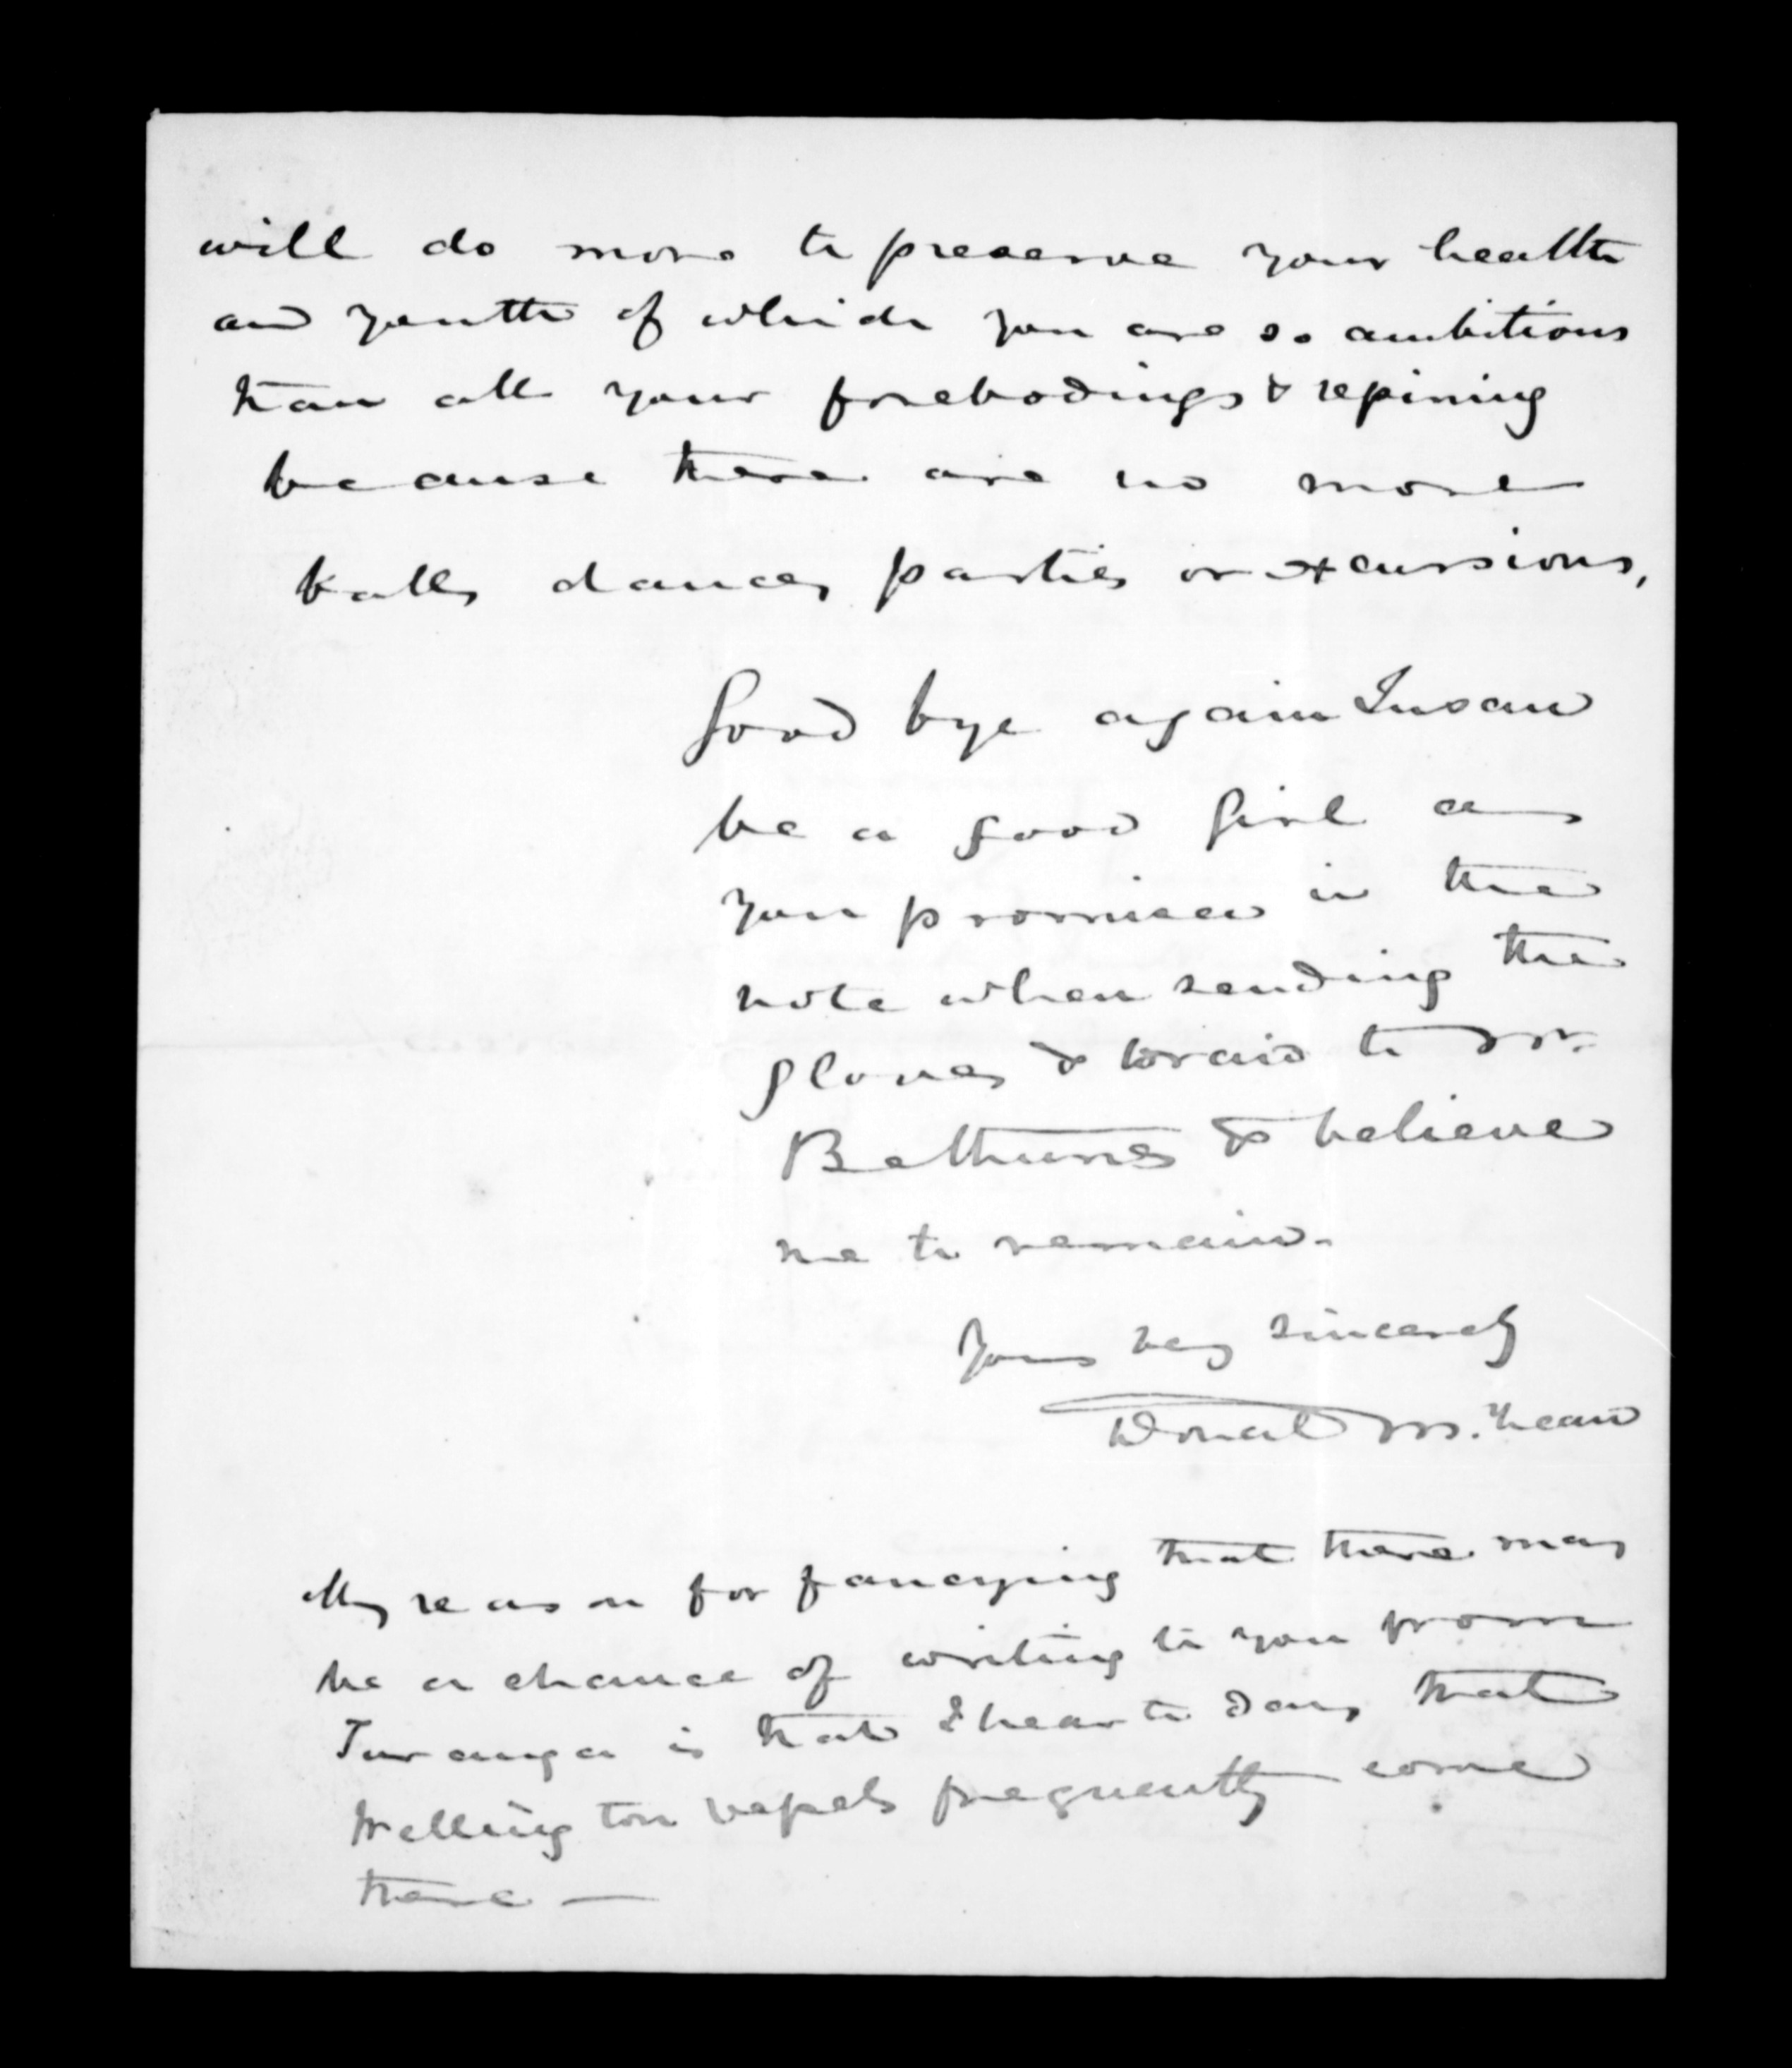 will do more to preserve your health
and youth of which you are so ambitious
than all your forebodings & repining
because there are no more
balls dances parties or excursions,
Good bye again Susan
be a good girl as
you promised in the
note when sending the
gloves & braid to Mr.
Bethunes & believe
me to remain.
Yours very sincerely
Donald McLean
My reason for fancying that there may
be a chance of writing to you from
Turanga is that I hear to day that
Wellington vessels frequently come
there —